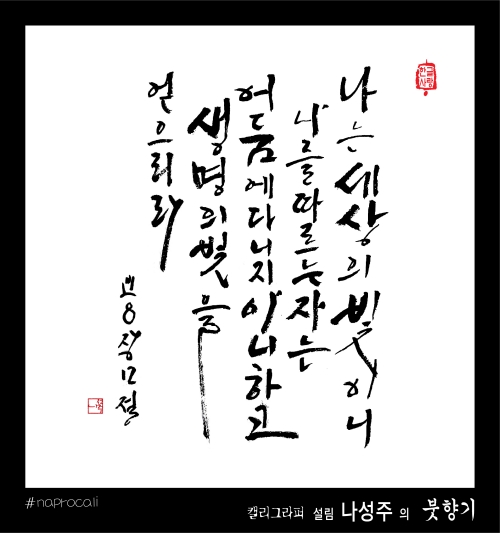 한글
사랑
나는 세상의 빛이니
나를 따르는 자는
어둠에 다니지 아니하고
생명의 빛을
얻으리라
요8장12절
#naprocali
캘리그라피 설림 나성주 의 붓향기